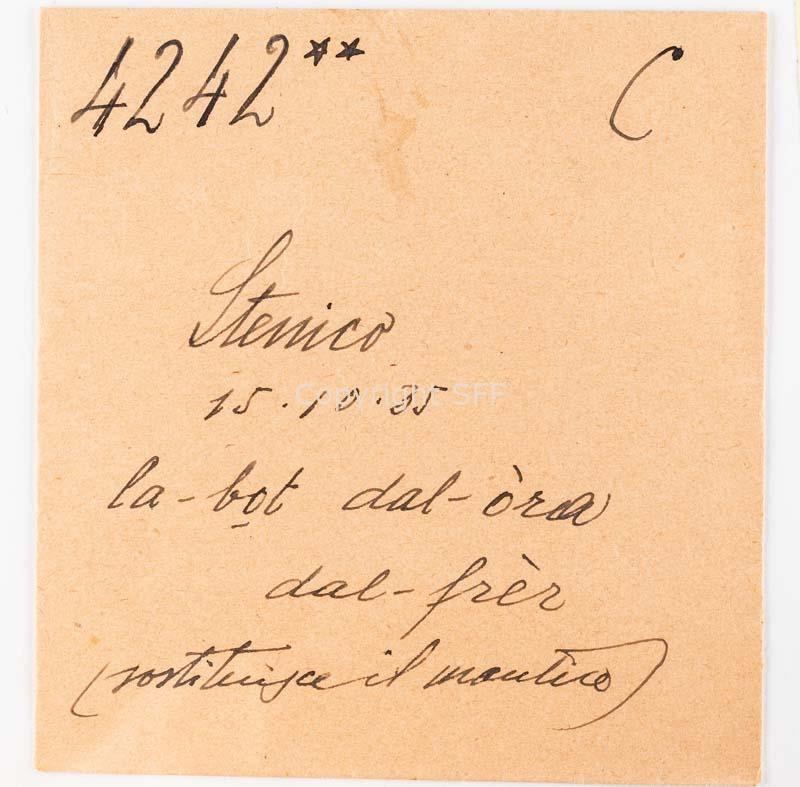 4242** C
Stenico
15.10.35
la-bọt dal-òra
dal-frèr
(sostituisce il mantice)
Copyright SFF